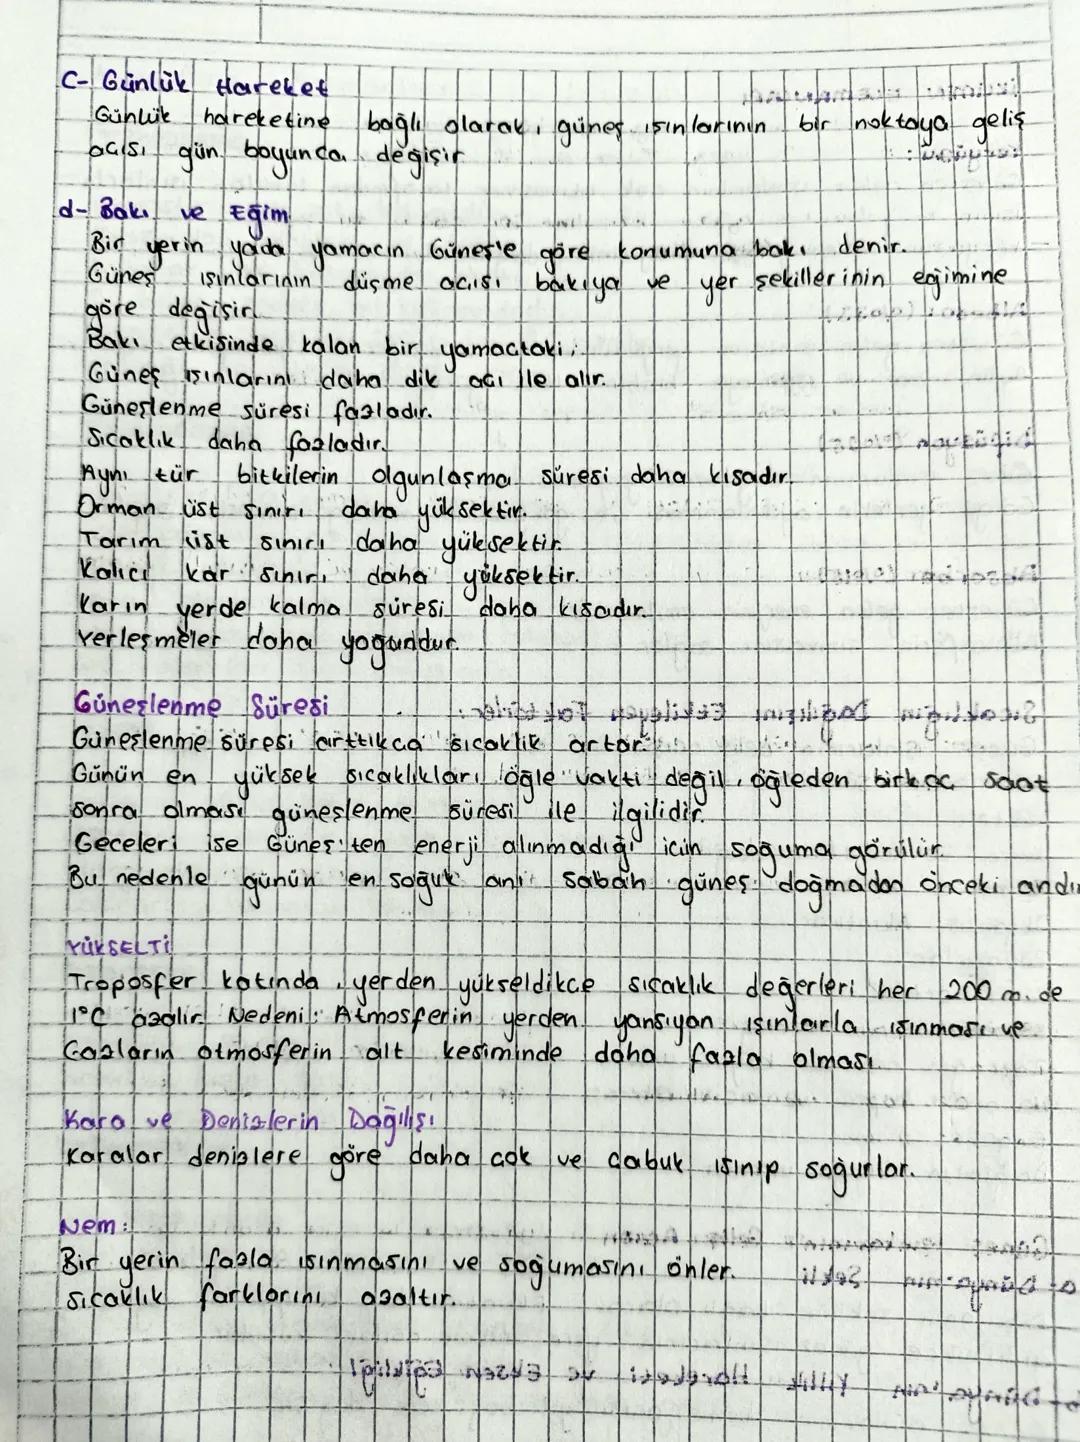 C- Günlük Hareket
Günlük hareketine bağlı olarak, güneş ışınlarının bir noktaya geliş
açısı gün boyunca değişir
d- Bakı ve Eğim
Bir yerin yada yamacın Güneş'e göre konumuna bakı denir.
Güneş ışınlarının düşme açısı bakıya ve yer şekillerinin eğimine
göre değişir.
Bakı etkisinde kalan bir yamactaki;
Güneş ışınlarını daha dik açı ile alır.
Güneşlenme süresi fazladır.
Sıcaklık daha fazladır.
Aynı tür bitkilerin olgunlaşma süresi daha kısadır.
Orman üst sınırı daha yüksektir.
Tarım üst sınırı daha yüksektir.
Kalıcı kar sınırı daha yüksektir.
Karın yerde kalma süresi daha kısadır.
Yerleşmeler daha yoğundur.
Güneşlenme Süresi
Güneşlenme süresi arttıkca sıcaklık artar.
Günün en yüksek sıcaklıkları öğle vakti değil, öğleden birkaç saat
sonra olması güneşlenme süresi ile ilgilidir.
Geceleri ise Güneş'ten enerji alınmadığı için soğuma görülür.
Bu nedenle günün en soğuk anı sabah güneş doğmadan önceki andır
YÜKSELTİ
Troposfer katında, yerden yükseldikce sıcaklık değerleri her 200 m. de
1°C azalır. Nedeni: Atmosferin yerden yansıyan ışınlarla ısınması ve
Gazların atmosferin alt kesiminde daha fazla olması
Kara ve Denizlerin Dağılışı
Karalar denizlere göre daha çok ve çabuk ısınıp soğurlar.
Nem:
Bir yerin fazla ısınmasını ve soğumasını önler.
Sıcaklık farklarını azaltır.